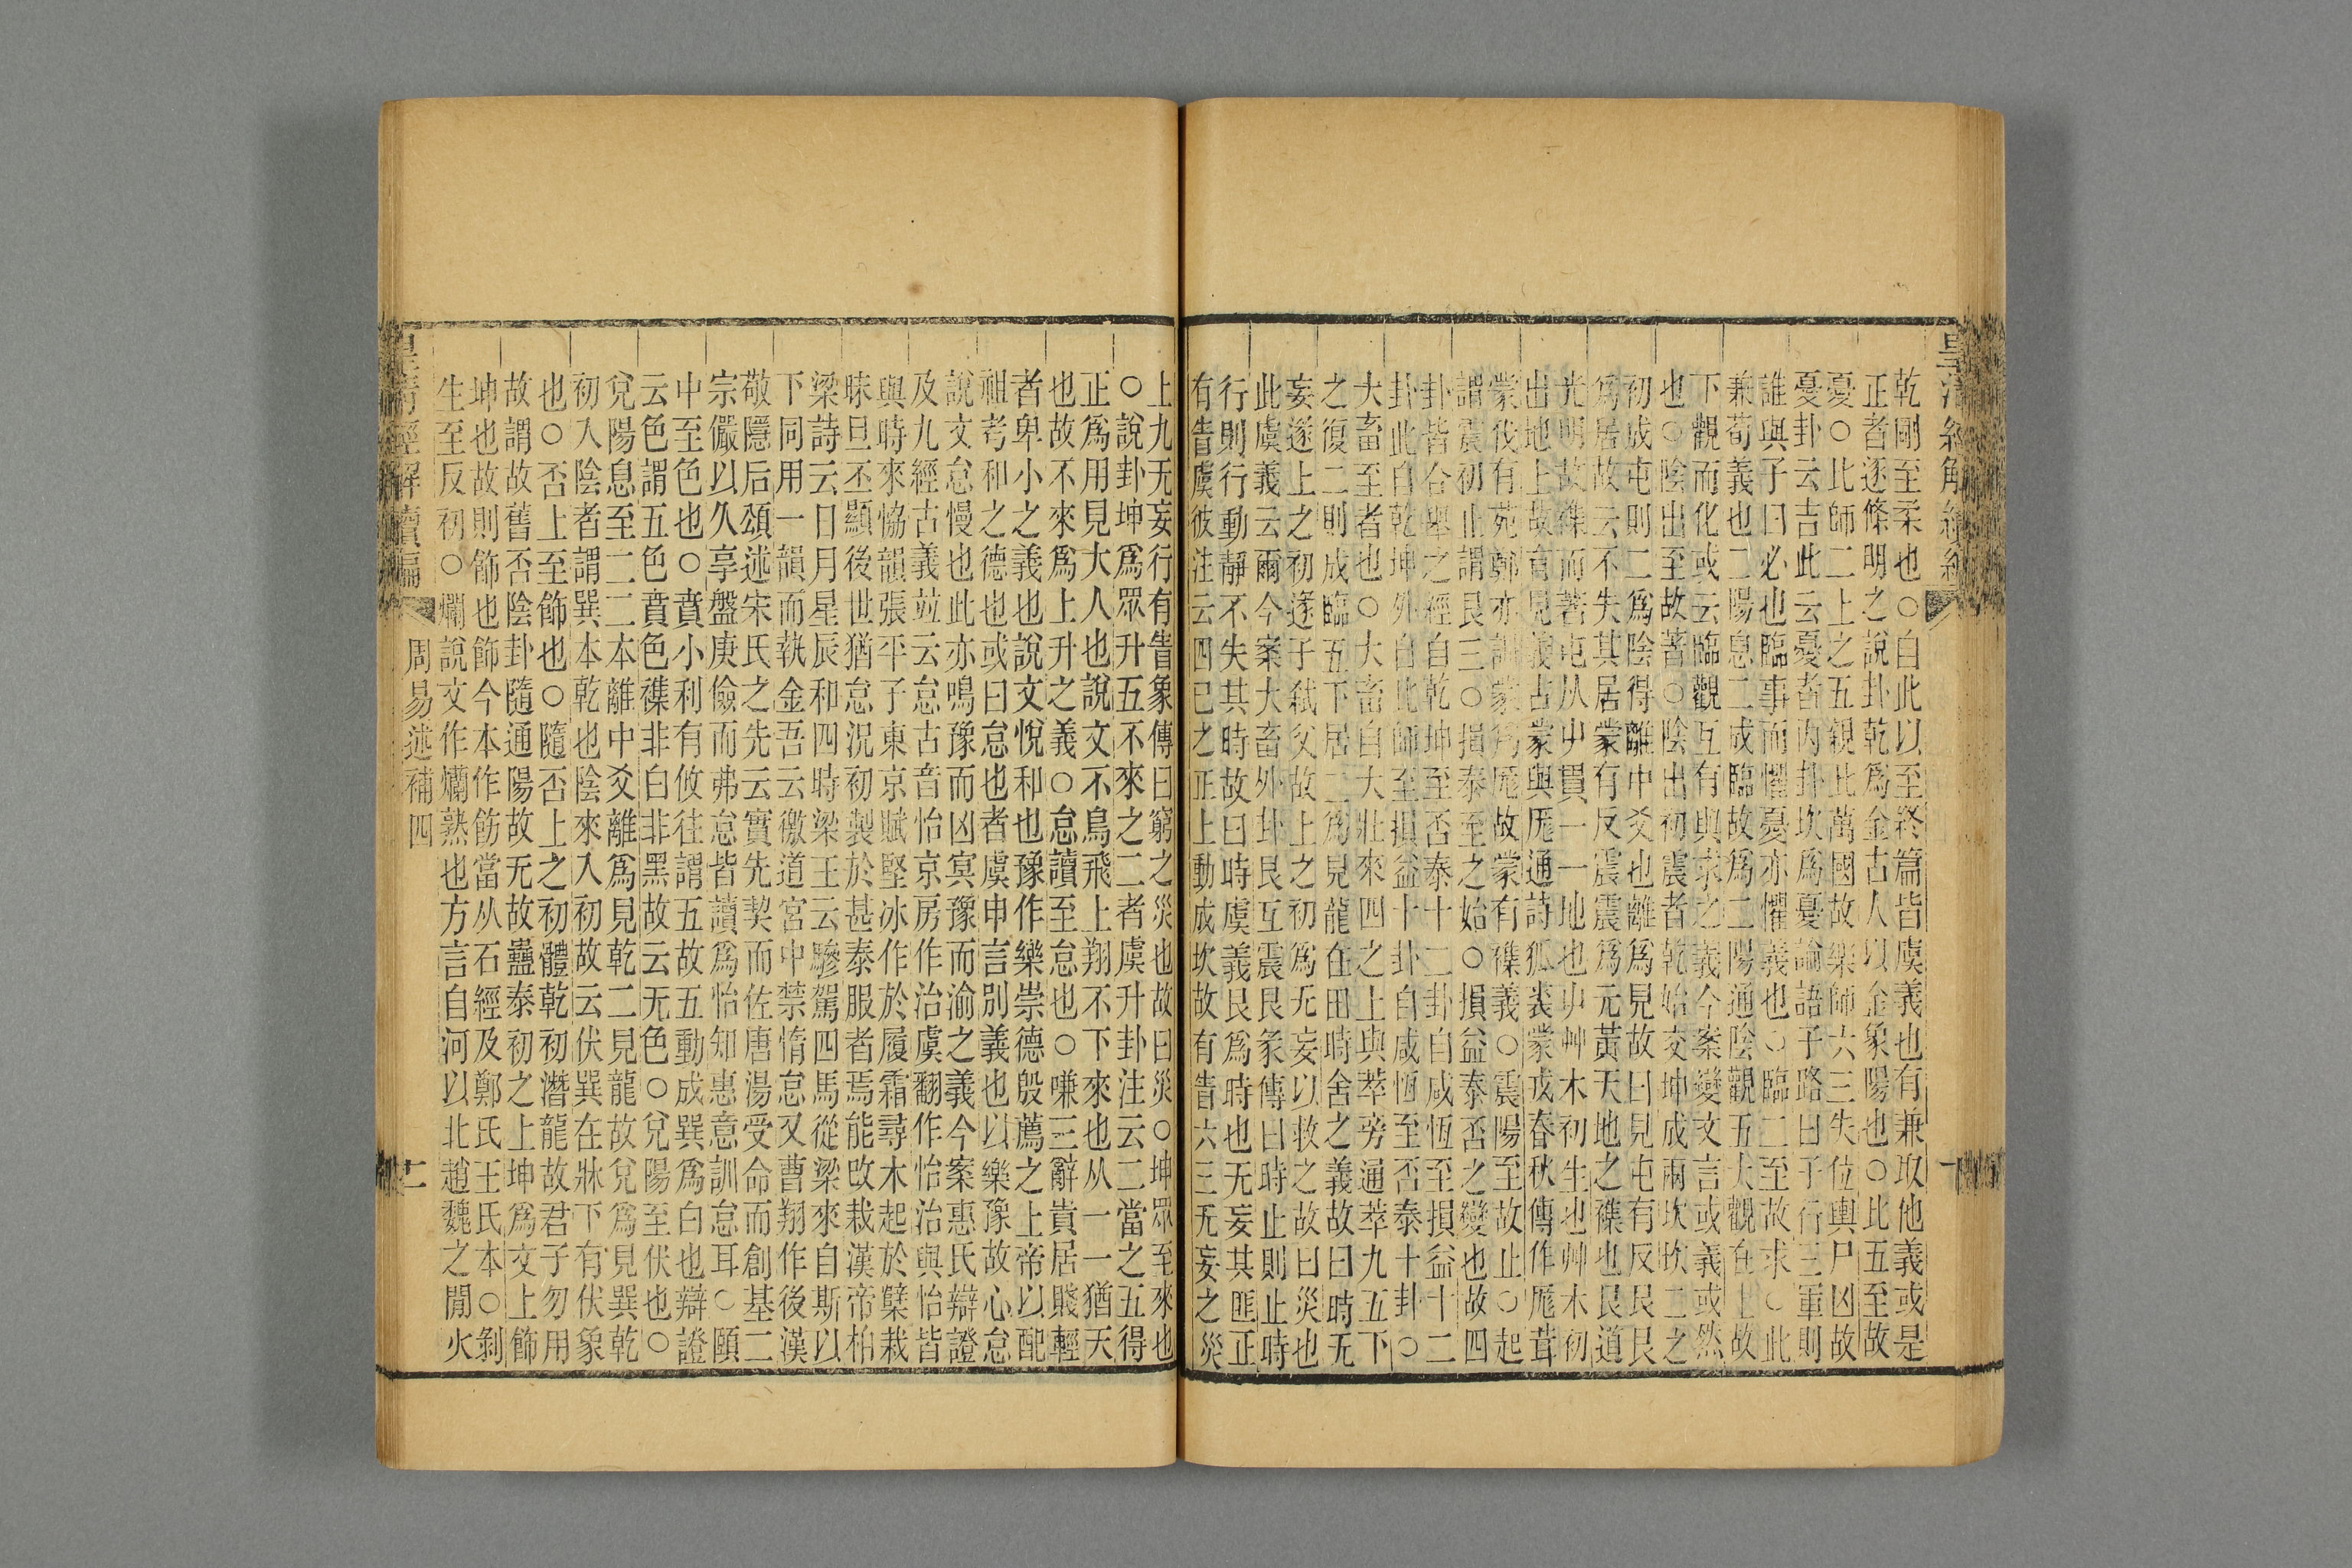 乾剛至柔也○自此以至終篇皆虞義也有兼取他義或是
正者逐條明之說卦乾爲金古人以金象陽也○比五至故
憂○比師二上之五親比萬國故樂師六三失位輿尸凶故
憂卦云吉此云憂者內卦坎爲憂論語子路曰子行三軍則
誰與子曰必也臨事而懼憂亦懼義也○臨二至故求○此
兼荀義也二陽息二成臨故爲二陽通陰觀五大觀在上故
下觀而化或云臨觀互有與求之義今案變文言或義或然
也○陰出至故著○陰出初震者乾始交坤成兩坎坎二之
初成屯則二爲陰得離中爻也離爲見故曰見屯有反艮艮
爲居故云不失其居蒙有反震震爲元黃天地之襍也艮道
光明故襍而著屯从屮貫一一地也屮艸木初生也艸木初
出地上故言見義古蒙與厖通詩狐裘蒙戎春秋傳作厖茸
蒙伐有苑鄭亦訓蒙爲厖故蒙有襍義○震陽至故止○起
謂震初止謂艮三○損泰至之始○損益泰否之變也故四
卦皆合舉之經自乾坤至否泰十二卦自咸恆至損益十二
卦此自乾坤外自比師至損益十卦自咸恆至否泰十卦○
大畜至者也○大畜自大壯來四之上與萃旁通萃九五下
之復二則成臨五下居二爲見龍在田時舍之義故曰時无
妄遂上之初遂子弒父故上之初爲无妄以救之故曰災也
此虞義云爾今案大畜外卦艮互震艮彖傳曰時止則止時
行則行動靜不失其時故曰時虞義艮爲時也无妄其匪正
有眚虞彼注云四已之正上動成坎故有眚六三无妄之災
上九无妄行有眚象傳曰窮之災也故曰災○坤眾至來也
○說卦坤爲眾升五不來之二者虞升卦注云二當之五得
正爲用見大人也說文不鳥飛上翔不下來也从一一猶天
也故不來爲上升之義○怠讀至怠也○嗛三辭貴居賤輕
者卑小之義也說文悅和也豫作樂崇德殷薦之上帝以配
祖考和之德也或曰怠也者虞申言別義也以樂豫故心怠
說文怠慢也此亦鳴豫而凶冥豫而渝之義今案惠氏辯證
及九經古義竝云怠古音怡京房作治虞翻作怡治與怡皆
與時來協韻張平子東京賦堅冰作於履霜尋木起於櫱栽
昧旦丕顯後世猶怠況初製於甚泰服者焉能改栽漢帝柏
梁詩云日月星辰和四時梁王云驂駕四馬從梁來自斯以
下同用一韻而執金吾云徼道宮中禁惰怠又曹翔作後漢
敬隱后頌述宋氏之先云實先契而佐唐湯受命而創基二
宗儼以久享盤庚儉而弗怠皆讀爲怡知惠意訓怠耳○頤
中至色也○賁小利有攸往謂五故五動成巽爲白也辯證
云色謂五色賁色襍非白非黑故云无色○兌陽至伏也○
兌陽息至二二本離中爻離爲見乾二見龍故兌爲見巽乾
初入陰者謂巽本乾也陰來入初故云伏巽在牀下有伏象
也○否上至飾也○隨否上之初體乾初潛龍故君子勿用
故謂故舊否陰卦隨通陽故无故蠱泰初之上坤爲文上飾
坤也故則飾也飾今本作飭當从石經及鄭氏王氏本○剝
生至反初○爛說文作爤熟也方言自河以北趙魏之閒火
皇清經解續編 周易述補四 二